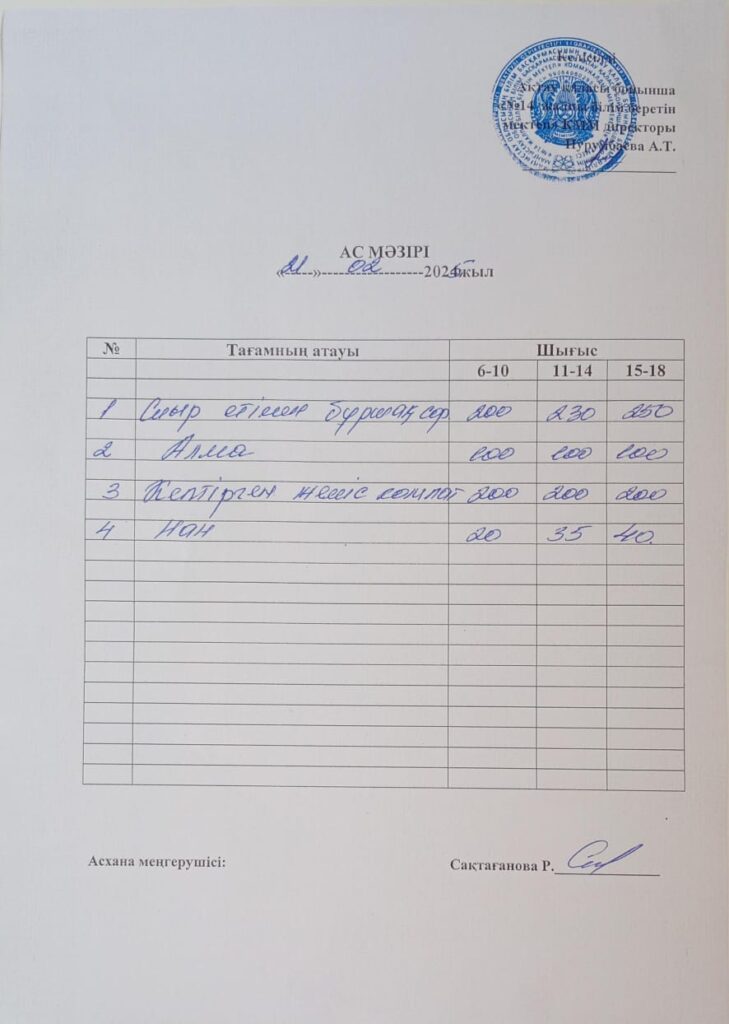 Келісемін
Ақтау қаласы бойынша
«№14 жалпы білім беретін
мектеп» КММ директоры
Нурумбаева А.Т.
АС МӘЗІРІ
«21» 02 2025 жыл
№ Тағамның атауы Шығыс
6-10 11-14 15-18
1 Сиыр етімен бұршақ сор 200 230 250
2 Алма 100 100 100
3 Кептірген жеміс компот 200 200 200
4 Нан 20 35 40
Асхана меңгерушісі: Сақтағанова Р.